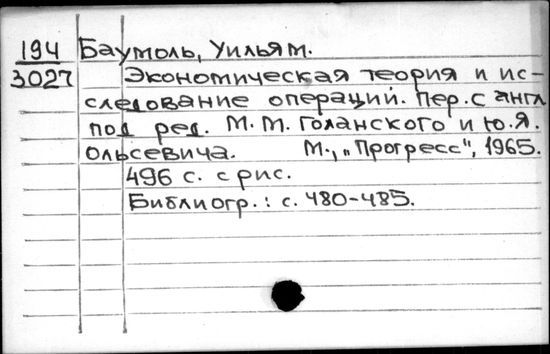 194 Баумоль, Уильям.
3027 Экономическая теория и ис-
следование операций. Пер. с англ
под ред. М.М. Голанского и Ю.Я.
Ольсевича. М., „Прогресс", 1965.
496 с. с рис.
Библиогр.: с. 480-485.